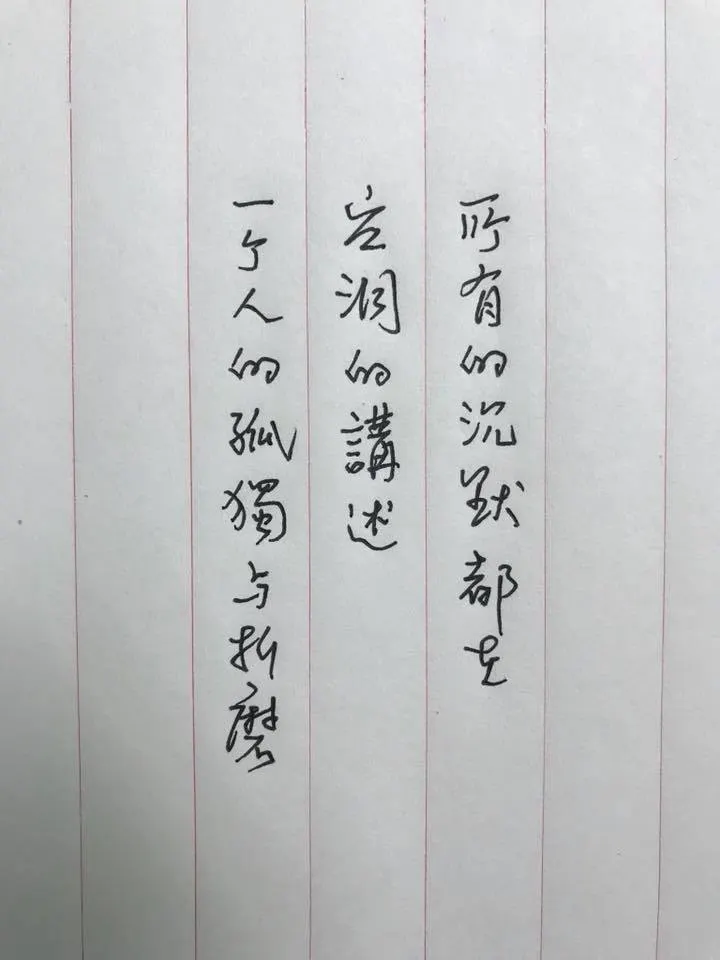 所有的沉默都在
空洞的講述
一个人的孤獨与折磨